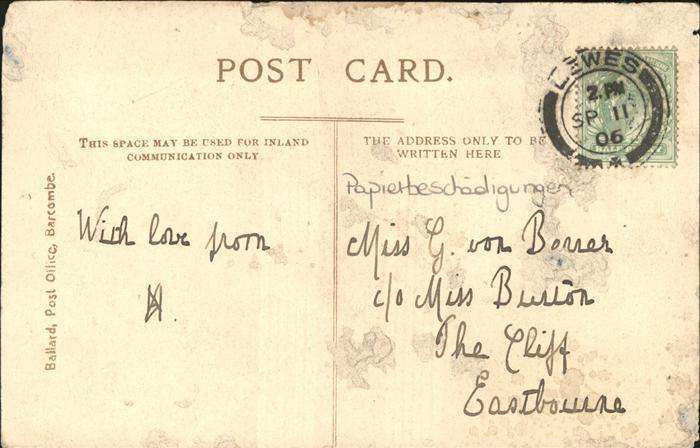 POST CARD.
THIS SPACE MAY BE USED FOR INLAND
COMMUNICATION ONLY.
THE ADDRESS ONLY TO BE
WRITTEN HERE
LEWES
2. PM
SP 11
06
Papierbeschädigungen
With love from
Miss G. von
c/o Miss
The Cliff
Eastbourne
Ballard, Post Office, Barcombe.